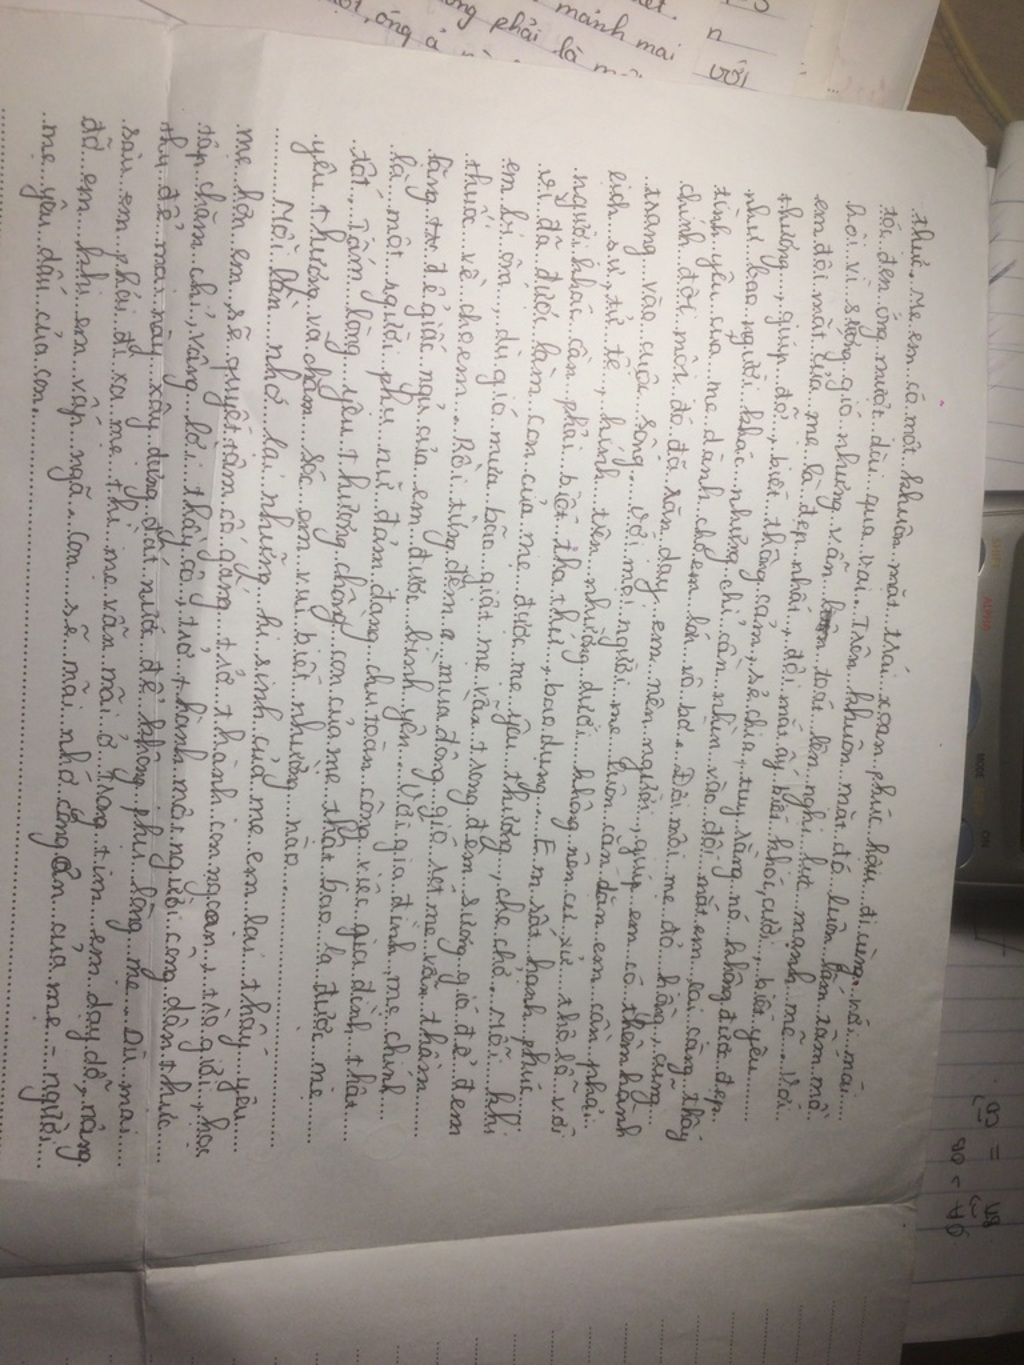 thứ. Mẹ em có một khuôn mặt trái xoan phúc hậu đi cùng với mái
tóc đen óng mượt dài qua vai. Trên khuôn mặt đó luôn lấm tấm mồ
hôi vì sương gió nhưng vẫn toát lên nghị lực mạnh mẽ. Với
em đôi mắt của mẹ là đẹp nhất, đôi mắt ấy biết khóc, cười, biết yêu
thương, giúp đỡ, biết thông cảm, sẻ chia, tuy rằng nó không được đẹp
như bao người khác nhưng chỉ cần nhìn vào đôi mắt em lại càng thấy
tình yêu của mẹ dành cho em lớn vô bờ. Đôi môi mẹ đỏ hồng, cũng
chính đôi môi đó đã răn dạy em nên người, giúp em có thêm hành
trang vào cuộc sống. Với mọi người mẹ luôn căn dặn em cần phải
lịch sự, tử tế, kính trên nhường dưới không nên cư xử thô lỗ với
người khác cần phải biết tha thứ, bao dung. Em rất hạnh phúc
vì đã được làm con của mẹ được mẹ yêu thương, che chở. Mỗi khi
em bị ốm, dù gió mưa bão giật mẹ vẫn trong đêm sương gió để đem
thuốc về cho em. Rồi từng đêm mùa đông gió rét mẹ vẫn thầm
lặng để giấc ngủ của em được bình yên. Với gia đình, mẹ chính
là một người phụ nữ đảm đang chu toàn công việc gia đình thật
tốt, tấm lòng yêu thương chồng con của mẹ thật bao la được mẹ
yêu thương và chăm sóc em vui biết nhường nào.
Mỗi lần nhớ lại những hi sinh của mẹ em lại thấy yêu
mẹ hơn em sẽ quyết tâm cố gắng trở thành con ngoan, trò giỏi, học
tập chăm chỉ, vâng lời thầy cô, trở thành một người công dân thực
thụ để mai này xây dựng đất nước để không phụ lòng mẹ. Dù mai
sau em phải đi xa mẹ thì mẹ vẫn mãi ở trong tim em dạy dỗ, nâng
đỡ em khi em vấp ngã. Con sẽ mãi nhớ công ơn của mẹ - người
mẹ yêu dấu của con.
phải là
mảnh mai
với
SHIFT
ALPHA
MODE
ON